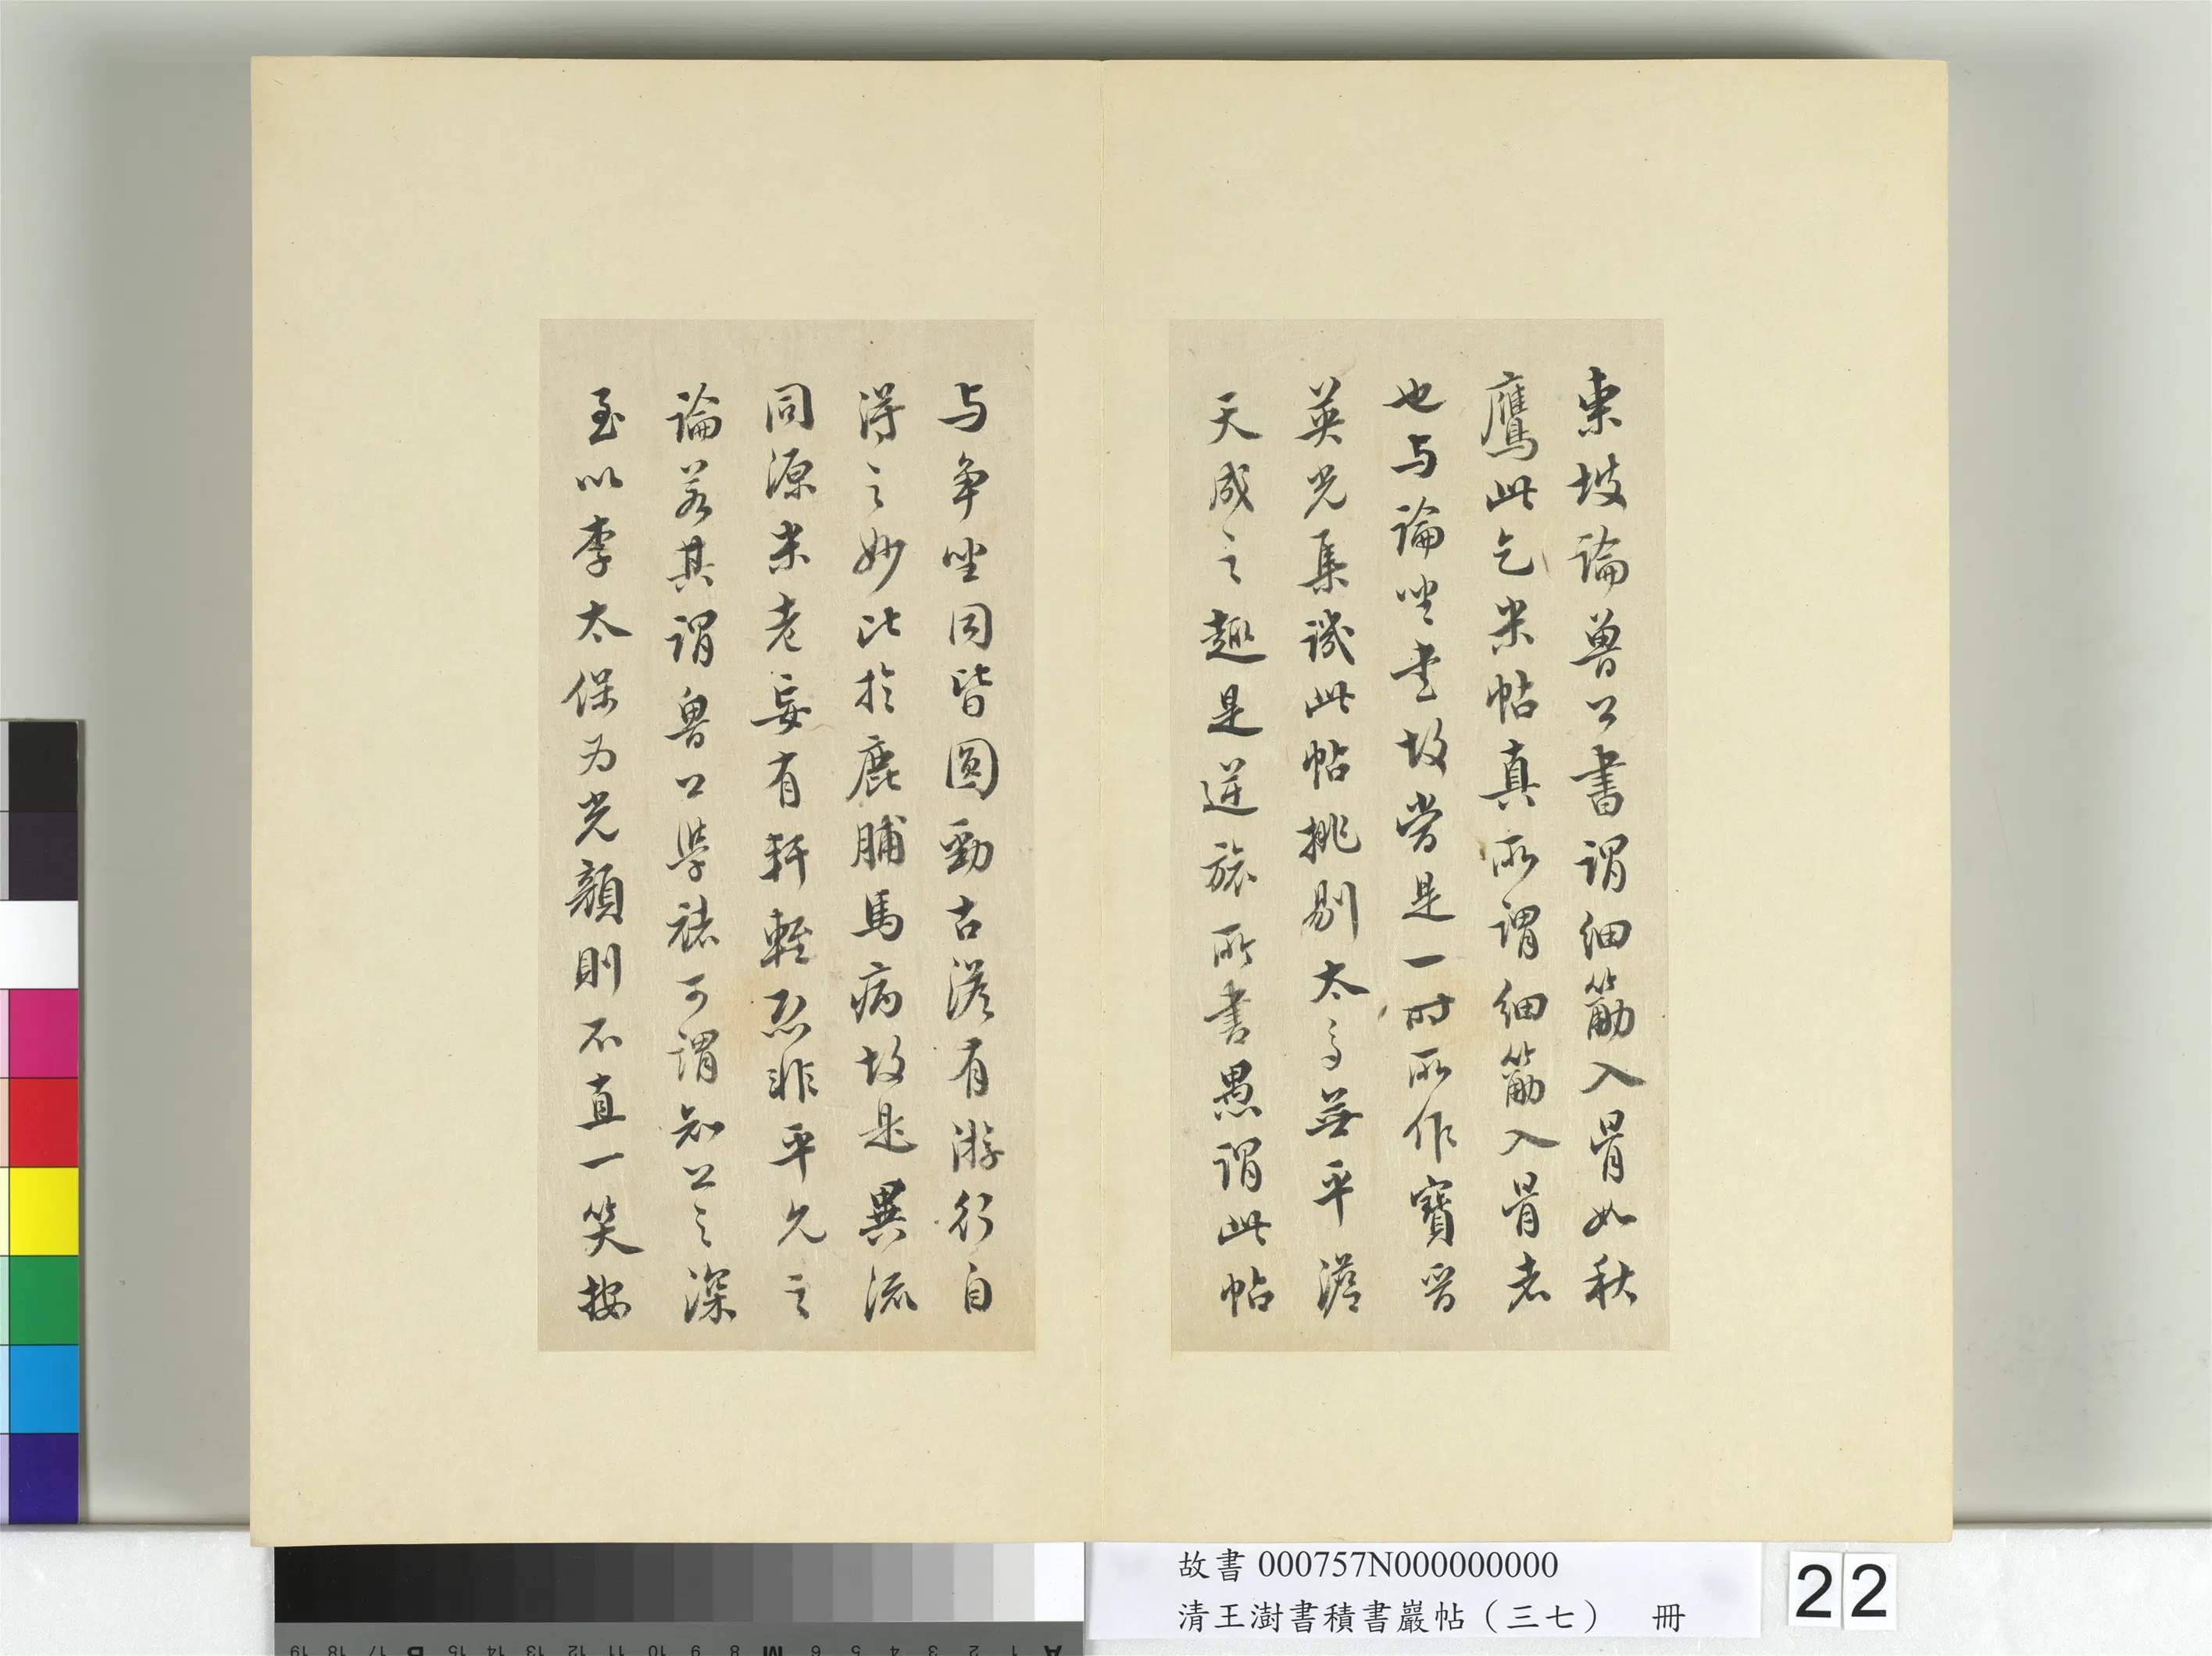 東坡論魯公書謂細筋入骨如秋
鷹此乞米帖真所謂細筋入骨者
也与論坐書故當是一時所作寶晉
英光集譏此帖挑剔太多無平淡
天成之趣是逆旅所書愚謂此帖
与争坐同皆圓勁古淡有游行自
得之妙比於鹿脯馬病故是異流
同源米老妄有軒輊恐非平允之
論若其謂魯公學褚可謂知公之深
至以李太保为光顏則不直一笑按
故書 000757N000000000
清王澍書積書巖帖（三七） 冊
22
A 1 2 3 4 5 6 M 8 9 10 11 12 13 14 15 B 17 18 19